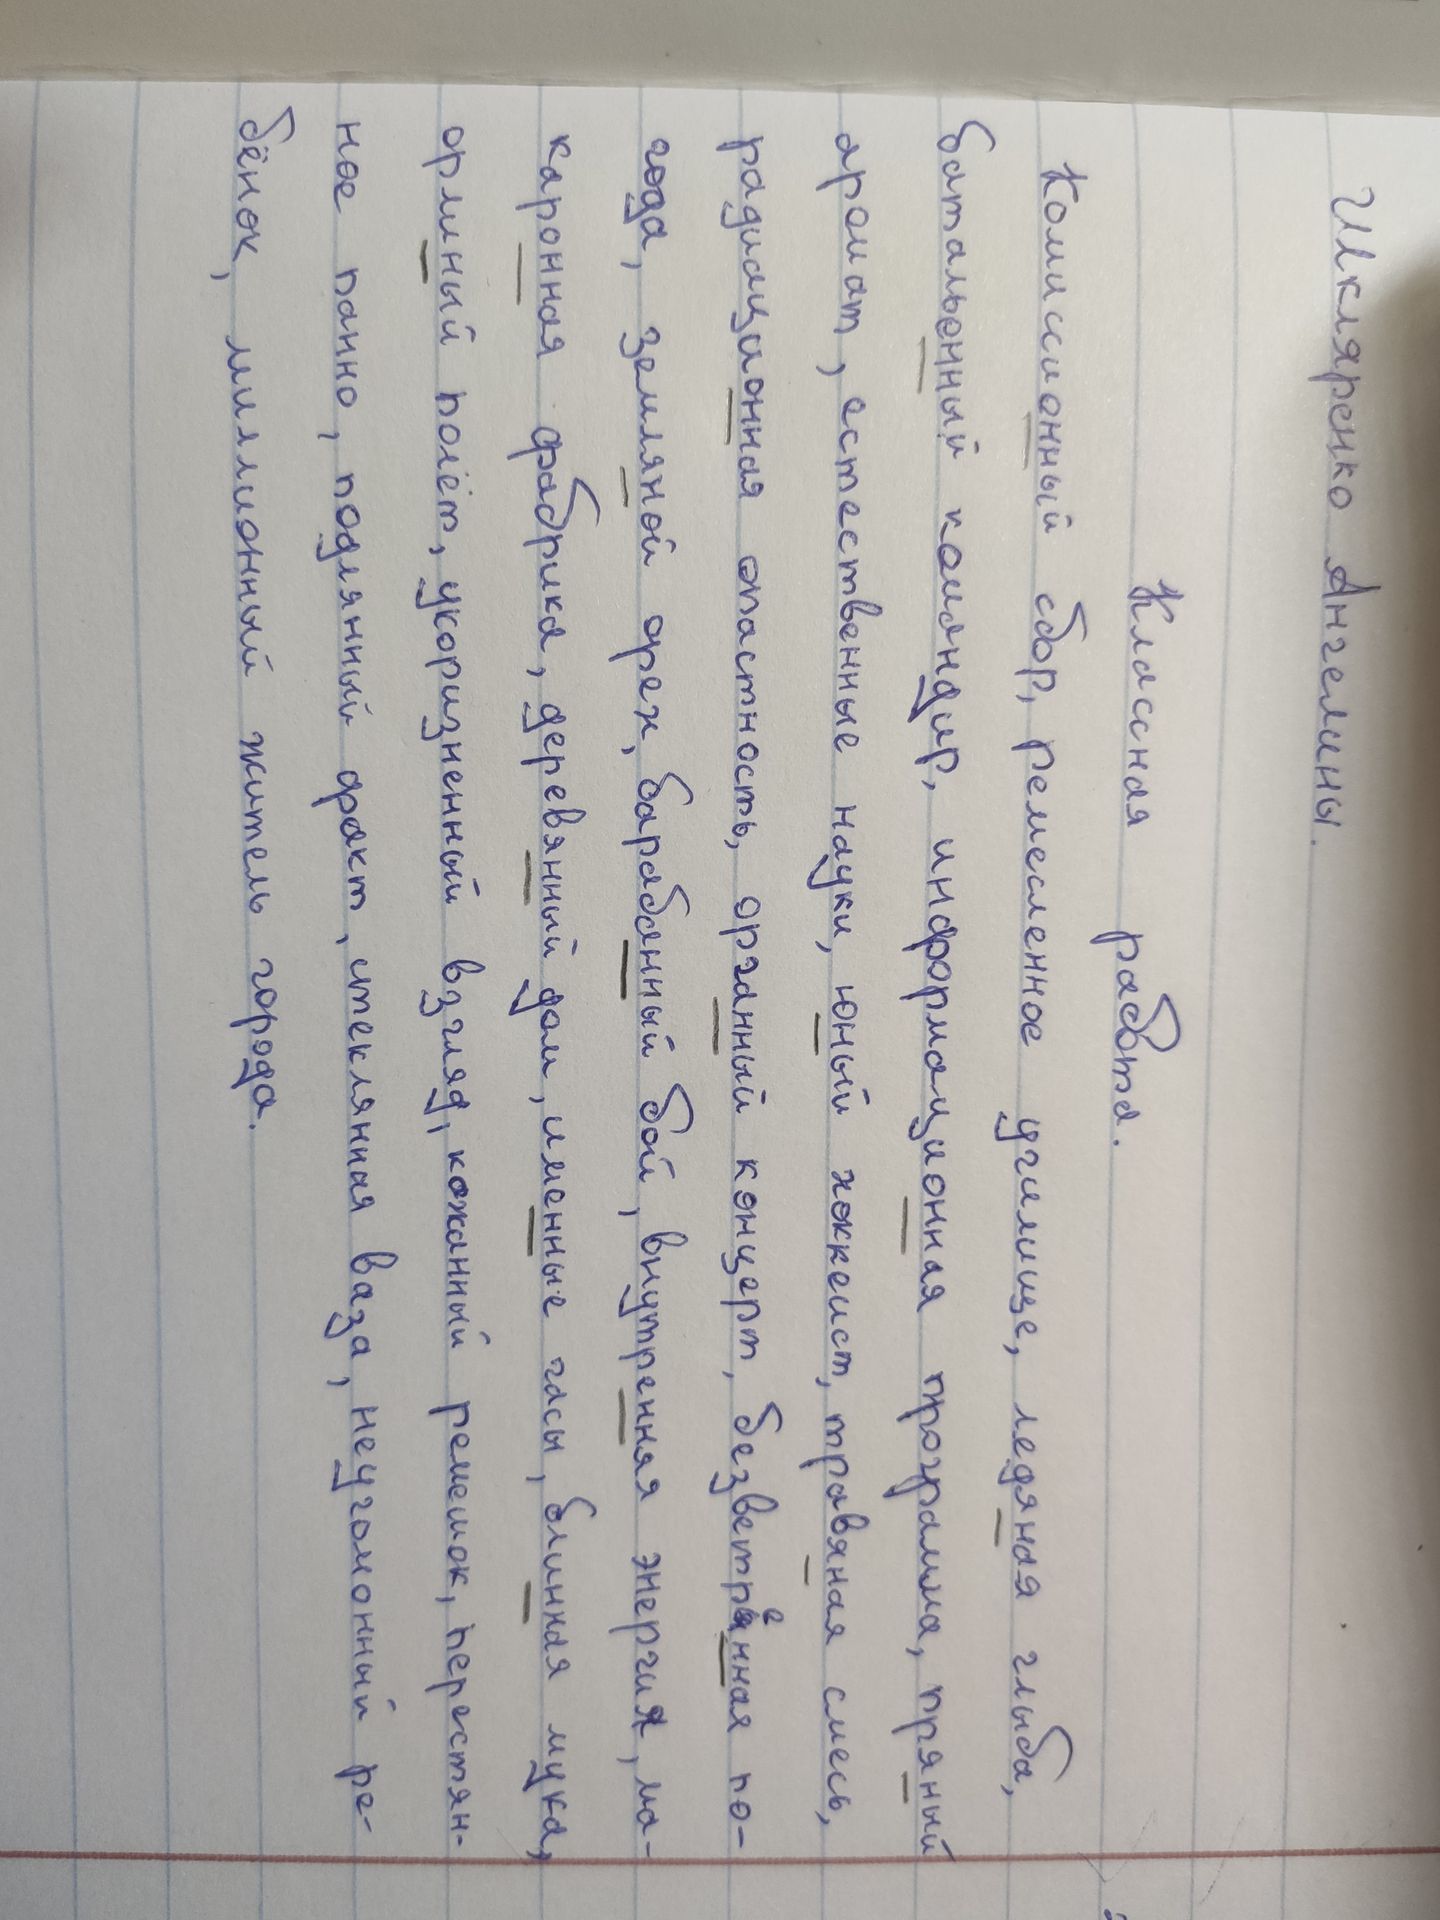 Шкляренко Ангелины.
Классная работа.
Комиссионный сбор, ремесленное училище, ледяная глыба,
батальонный командир, информационная программа, пряный
аромат, естественные науки, юный хоккеист, травяная смесь,
радиационная опастность, органный концерт, безветренная по-
года, земляной орех, барабанный бой, внутренняя энергия, ма-
каронная фабрика, деревянный дом, именные часы, блинная мука,
орлиный полёт, укоризненный взгляд, кожанный ремешок, перестян-
ное панно, подлянный факт, стеклянная ваза, неугомонный ре-
бёнок, миллионный житель города.